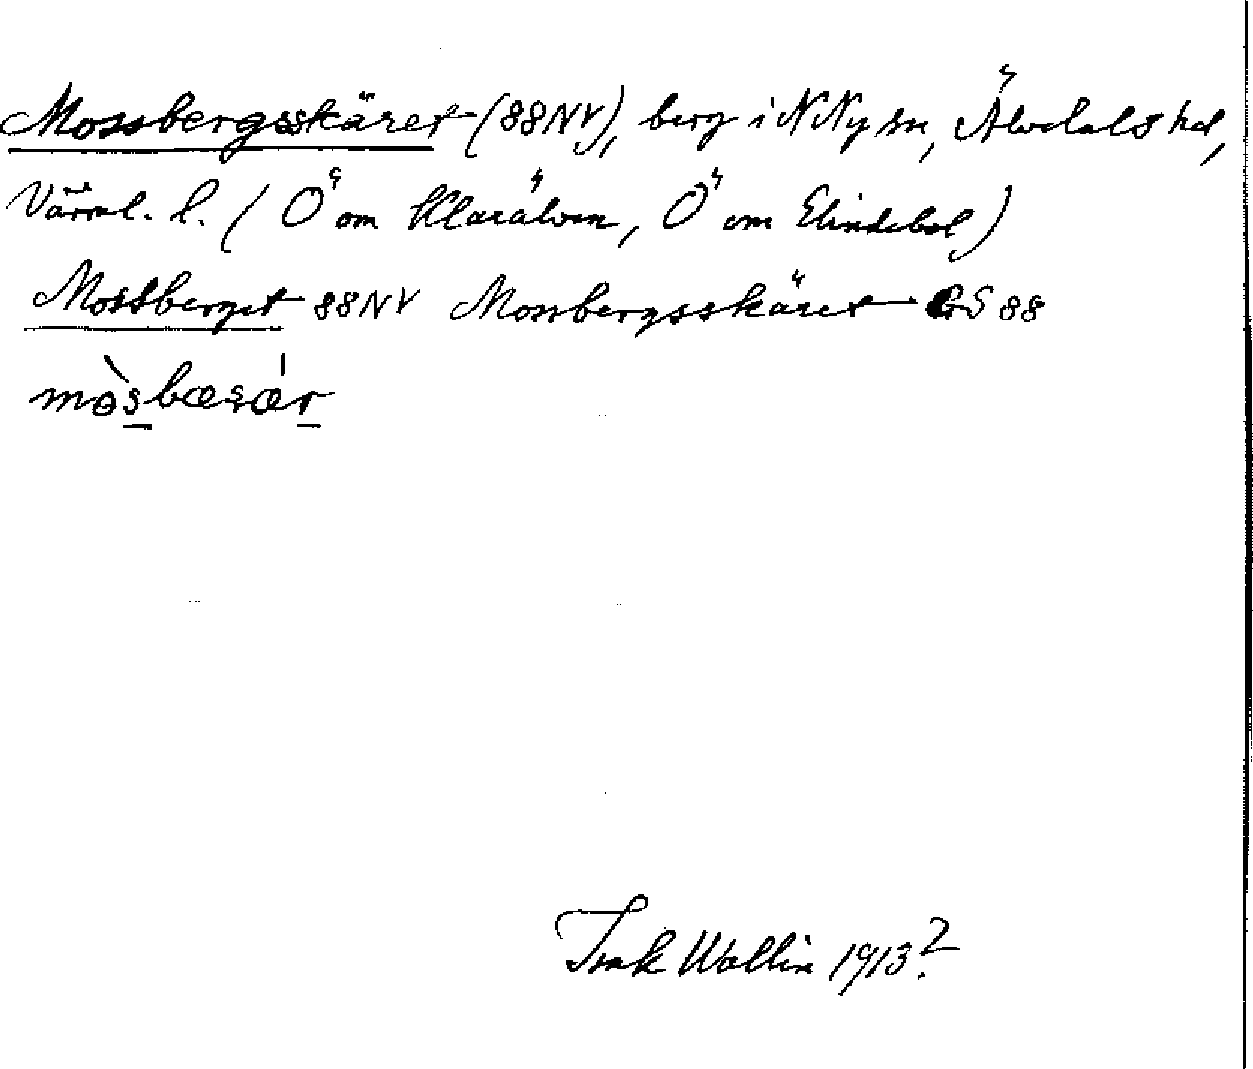 Mossbergsskäret (88NV), berg i N Ny sn, Älvdals hd,
Värml. l. (Ö om Klarälven, Ö om Elindebol)
Mossberget 88NV Mossbergsskäret GS 88
mòsbæʂǽr
Isak Wallin 1913?